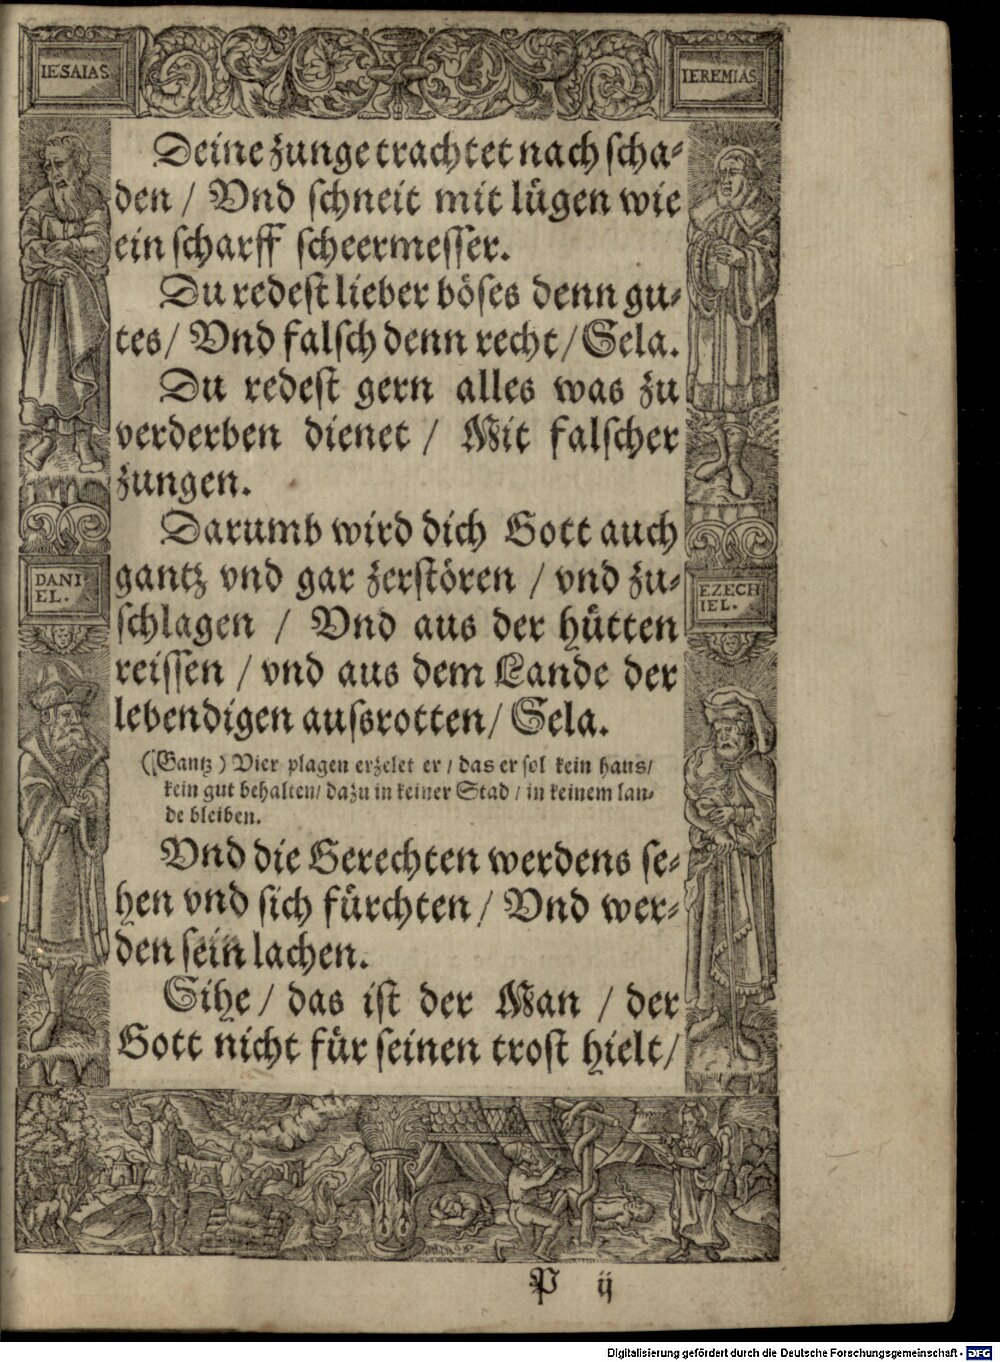 IESAIAS
IEREMIAS
Deine zunge trachtet nach scha⸗
den / Vnd schneit mit lügen wie
ein scharff scheermesser.
Du redest lieber böses denn gu⸗
tes / Vnd falsch denn recht / Sela.
Du redest gern alles was zu
verderben dienet / Mit falscher
zungen.
Darumb wird dich Gott auch
gantz vnd gar zerstören / vnd zu⸗
schlagen / Vnd aus der hütten
reissen / vnd aus dem Lande der
lebendigen ausrotten / Sela.
(Gantz) Vier plagen erzelet er / das er sol kein haus /
kein gut behalten / dazu in keiner Stad / in keinem lan⸗
de bleiben.
Vnd die Gerechten werdens se⸗
hen vnd sich fürchten / Vnd wer⸗
den sein lachen.
Sihe / das ist der Man / der
Gott nicht für seinen trost hielt /
DANI
EL.
EZECH
IEL.
P ij
Digitalisierung gefördert durch die Deutsche Forschungsgemeinschaft - DFG